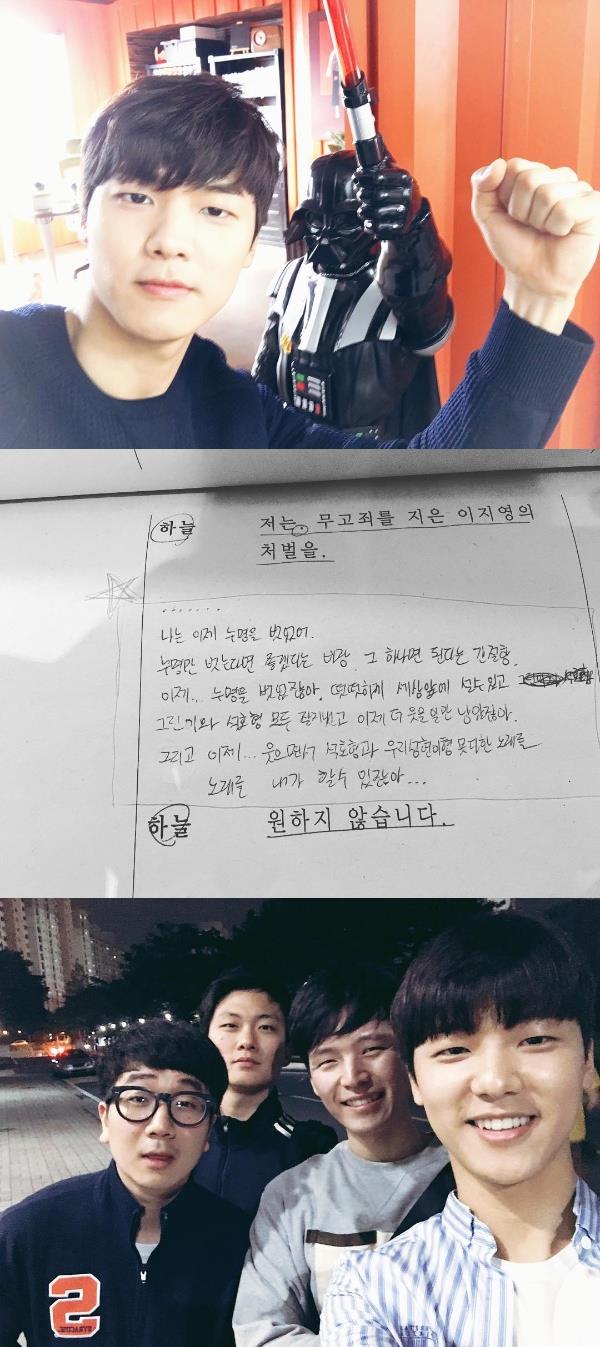 하늘 저는, 무고죄를 지은 이지영의
처벌을.
.......
나는 이제 누명을 벗었어.
누명만 벗는다면 좋겠다는 바람. 그 하나면 된다는 간절함.
이제... 누명을 벗었잖아. 떳떳하게 세상앞에 설수있고
그린기와 석호형 모두 탈지내고 이제 더 웃을일만 남았잖아.
그리고 이제... 웃으면서 석호형과 우리상현이형 못다한 노래를
노래를 내가 할수 있잖아...
하늘 원하지 않습니다.
S
SYRACUSE